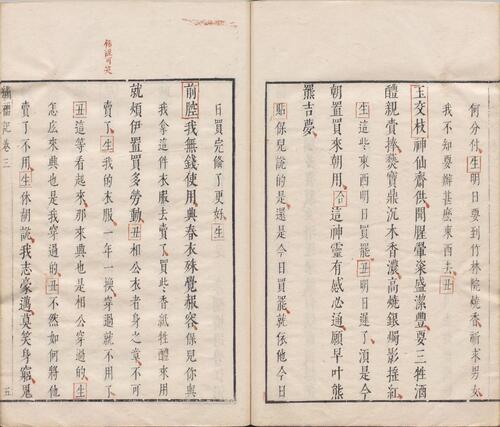 何分付生明日要到竹林院燒香祈求男女
我不知要辦甚麽東西去丑
玉交枝神仙齋供開腥葷粢盛潔豐要三牲酒
醴親賫捧爇寶鼎沉木香濃高燒銀燭影搖紅
生這些東西明日買罷丑明日遲了須是今
朝置買來朝用合這神靈有感必通願早叶熊
羆吉夢
貼保兒說的是還是今日買罷就依他今日
可笑
日買完俻了更好生
前腔我無錢使用典春衣殊覺赧容保兒你與
我拿這件衣服去賣了買些香紙牲醴來用
就煩伊置買多勞動丑相公衣者身之章不可
賣了生我的衣服一年一換穿過就不用了
丑這等看起來那來典也是相公穿過的生
怎麽來典也是我穿過的丑不然如何將他
賣了不用生休胡說我志豪邁莫笑身窮鬼
繡襦記卷三 五